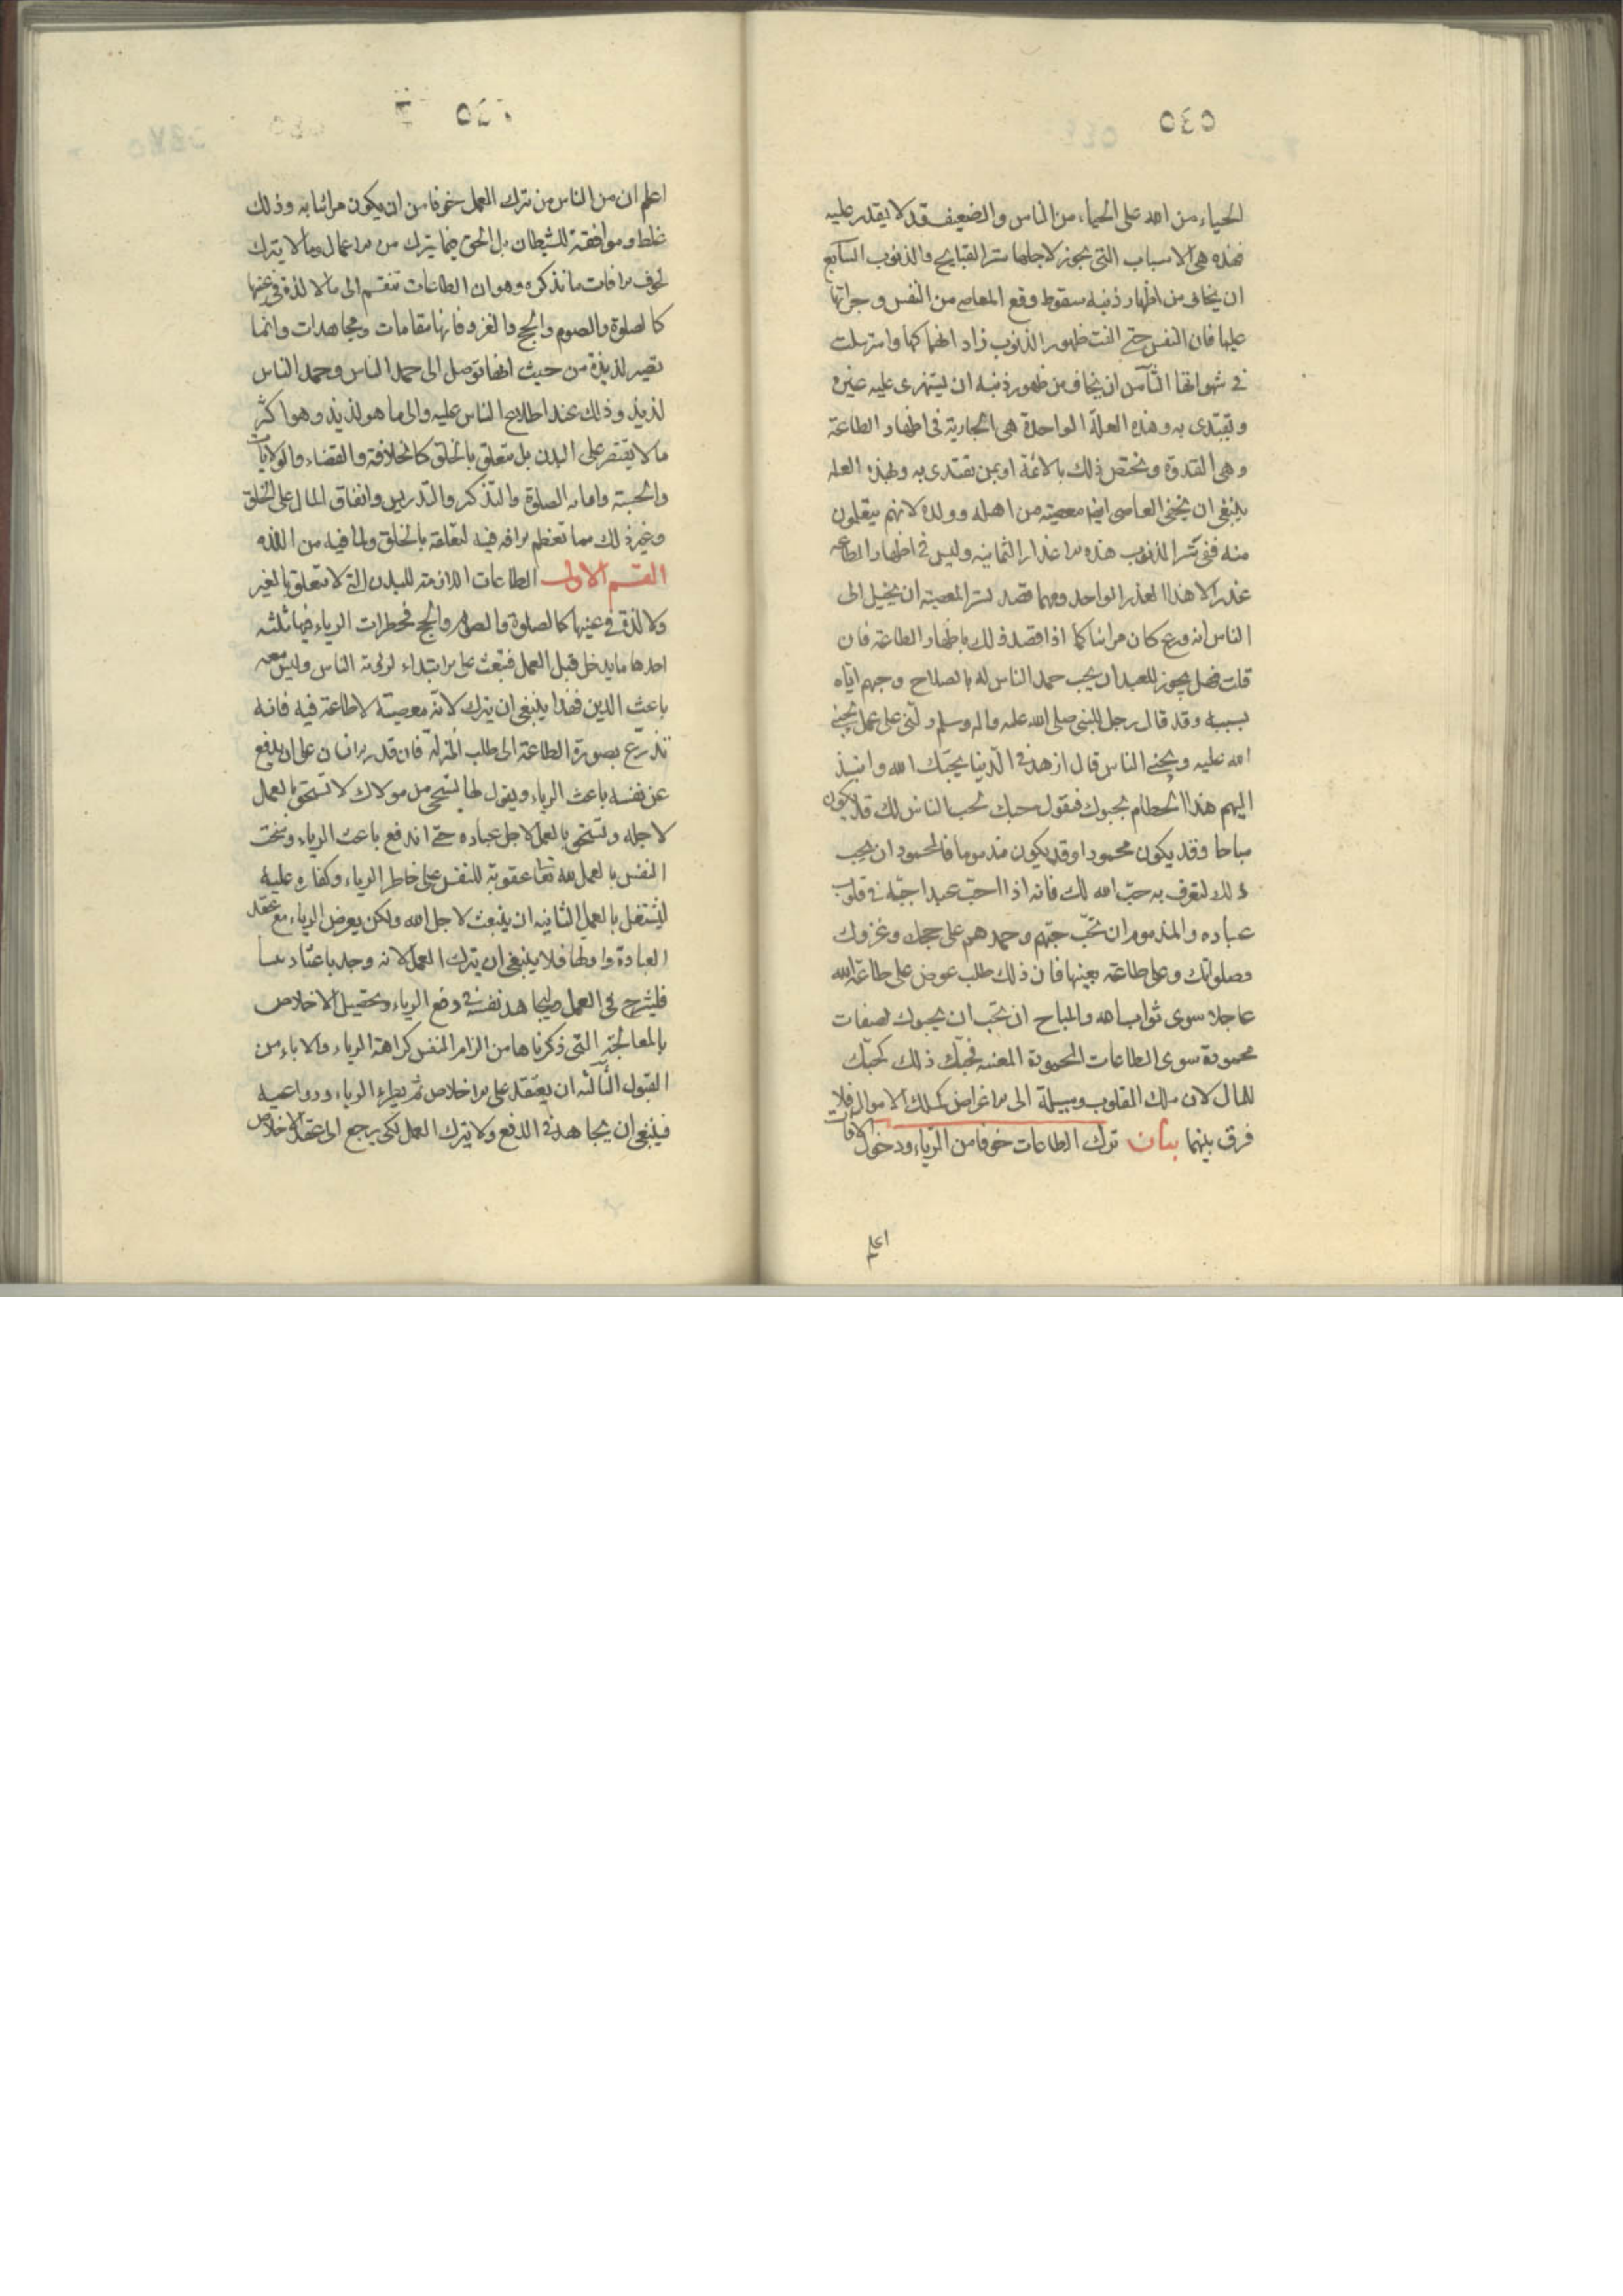 ٥٤٥
الحياء من الله على الحياء من الناس والضعيف قد لا يقدر عليه
فهذه هي الاسباب التي يجوز لاجلها ستر القبايح والذنوب السابع
ان يخاف من اظهار ذنبه سقوط وقع المعاصي من النفس وجراتها
عليها فان النفس متى الفت ظهور الذنوب زاد انهماكها واسترسلت
في شهواتها الثامن ان يخاف من ظهور ذنبه ان يستهزى عليه غيره
ويقتدى به وهذه العلة الواحدة هي الجارية في اظهار الطاعة
وهي القدوة ويختص ذلك بالائمة او بمن يقتدى به ولهذه العله
ينبغي ان يخفي العاصي ايضا معصيته من اهله وولده لانهم يتعلمون
منه ففي ستر الذنوب هذه الاعذار الثمانيه وليس في اظهار الطاعه
عذر الا هذا العذر الواحد ومهما قصد لستر المعصية ان يخيل الى
الناس انه ورع كان مرائيا كما اذا قصد ذلك باظهار الطاعة فان
قلت فهل يجوز للعبد ان يحب حمد الناس له بالصلاح وحبهم اياه
بسببه وقد قال رجل للنبي صلى الله عليه واله وسلم دلني على عمل يحبني
الله عليه ويحبني الناس قال ازهد في الدنيا يحبك الله وانبذ
اليهم هذا الحطام يحبوك فنقول حبك لحب الناس لك قد يكون
مباحا وقد يكون محمودا وقد يكون مذموما فالمحمود ان تحب
ذلك لتعرف به حب الله لك فانه اذا احب عبدا حببه في قلوب
عباده والمذموم ان تحب حبهم وحمدهم على حجك وغزوك
وصلواتك وعلى طاعة بعينها فان ذلك طلب عوض على طاعة الله
عاجلا سوى ثواب الله والمباح ان تحب ان يحبوك لصفات
محمودة سوى الطاعات المحمودة المعينه فحبك ذلك كحبك
للمال لان ملك القلوب وسيلة الى الاغراض كملك الاموال فلا
فرق بينهما بيان ترك الطاعات خوفا من الرياء ودخول الافات
اعلم
اعلم ان من الناس من ترك العمل خوفا من ان يكون مرائيا به وذلك
غلط وموافقة للشيطان بل الحق فيما يترك من الاعمال وما لا يترك
لخوف الافات ما نذكره وهو ان الطاعات تنقسم الى ما لا لذة في عينها
كالصلوة والصوم والحج والغزو فانها مقامات ومجاهدات وانما
تصير لذيذة من حيث انها توصل الى حمد الناس وحمد الناس
لذيذ وذلك عند اطلاع الناس عليه والى ما هو لذيذ وهو اكثر
ما لا يقتصر على البدن بل يتعلق بالخلق كالخلافة والقضاء والولايات
والحسبة وامامة الصلوة والتذكير والتدريس وانفاق المال على الخلق
وغير ذلك مما تعظم الافه فيه لتعلقه بالخلق ولما فيه من اللذه
القسم الاول الطاعات اللازمة للبدن التي لا تتعلق بالغير
ولا لذة في عينها كالصلوة والصوم والحج فخطرات الرياء فيها ثلثه
احدها ما يدخل قبل العمل فتبعث على الابتداء لرؤية الناس وليس معه
باعث الدين فهذا ينبغي ان يترك لانه معصية لا طاعة فيه فانه
تذرع بصورة الطاعة الى طلب المنزلة فان قدر الانسان على ان يدفع
عن نفسه باعث الرياء ويقول لها لتستحي من مولاك لا تستحي بالعمل
لاجله وتستحي بالعمل لاجل عباده حتى اندفع باعث الرياء وسخت
النفس بالعمل لله تعالى عقوبة للنفس على خاطر الرياء وكفاره عليه
ليشتغل بالعمل الثانيه ان ينبعث لاجل الله ولكن يعرض الرياء مع عقد
العبادة واولها فلا ينبغي ان يترك العمل لانه وجد باعثا دينيا
فليشرع في العمل وليجاهد نفسه في دفع الرياء وتحصيل الاخلاص
بالمعالجة التي ذكرناها من الزام النفس كراهة الرياء والاباء من
القبول الثالثه ان يعتقد على الاخلاص ثم يطرء الرياء ودواعيه
فينبغي ان يجاهد في الدفع ولا يترك العمل لكي يرجع الى عقد الاخلاص